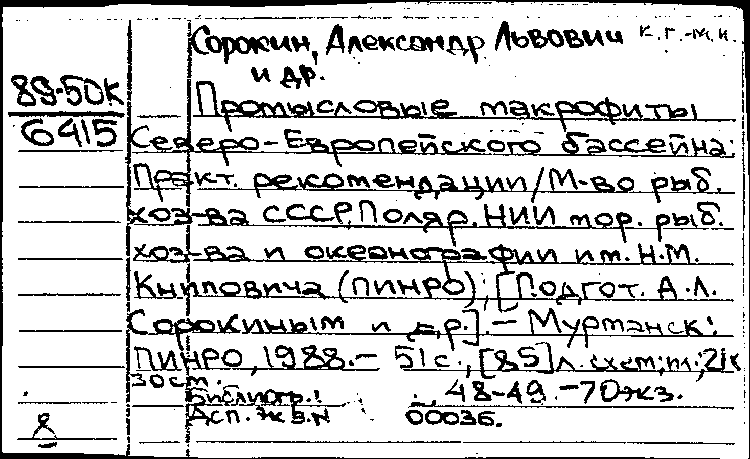 Сорокин, Александр Львович к. г.-м. н.
и др.
89-50К
6415
Промысловые макрофиты
Северо-Европейского бассейна:
Практ. рекомендации/М-во рыб.
хоз-ва СССР, Поляр. НИИ мор. рыб.
хоз-ва и океанографии им. Н.М.
Книповича (ПИНРО); [Подгот. А.Л.
Сорокиным и др.]. - Мурманск:
ПИНРО, 1988. - 51 с., [85] л. схем; ил.; 21х
30 см.
Библиогр.: 48-49. - 70 экз.
Дсп. Экз. N 00036.